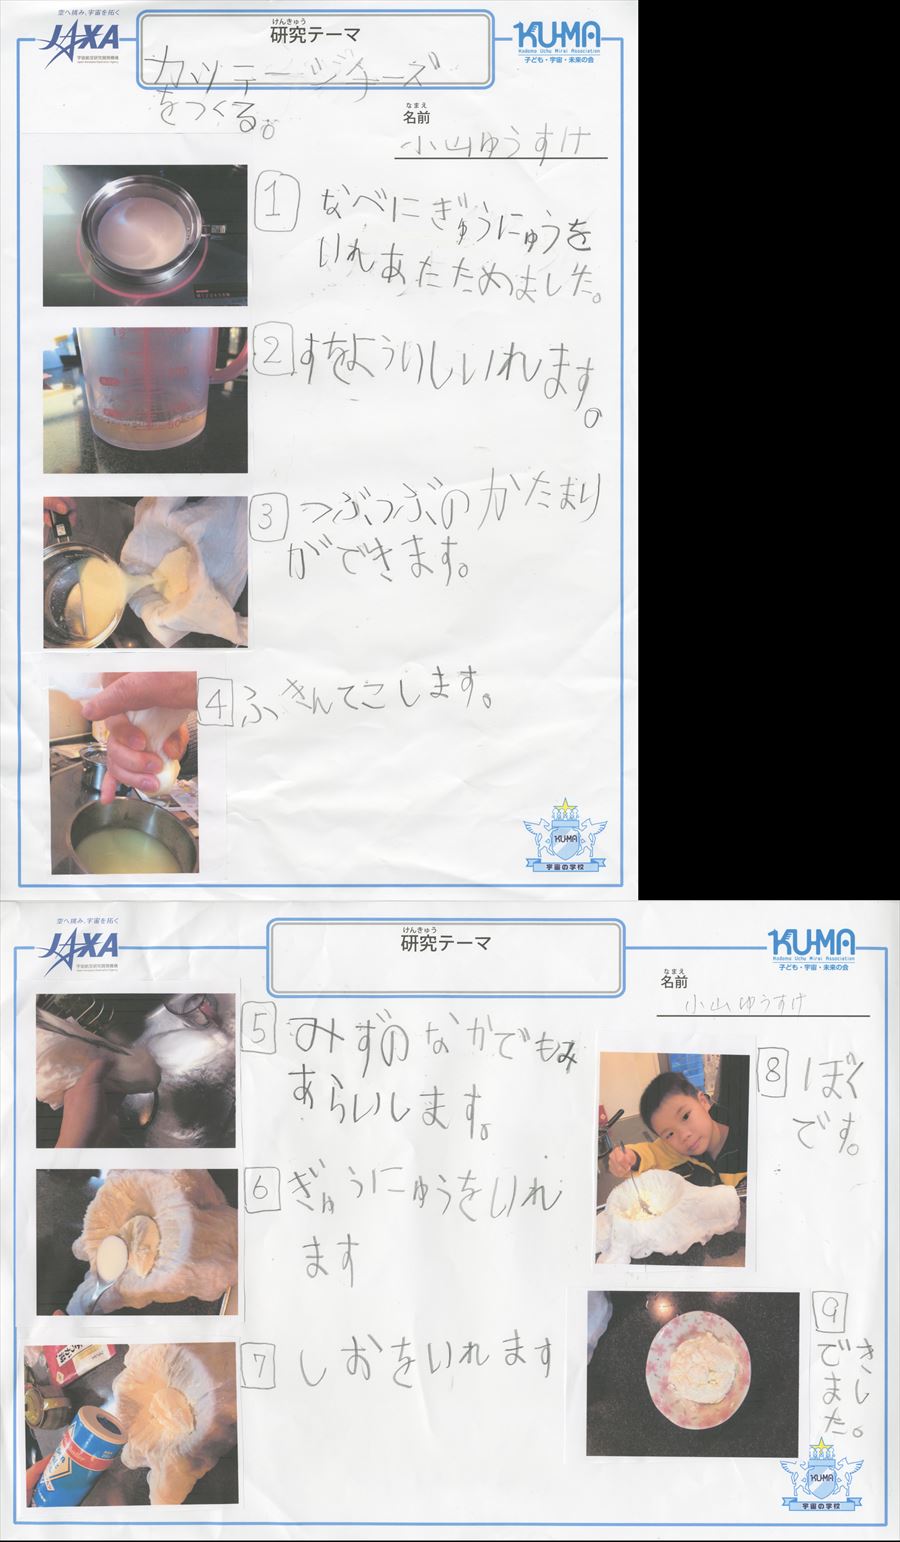 空へ挑み、宇宙を拓く
JAXA
宇宙航空研究開発機構
Japan Aerospace Exploration Agency
けんきゅう
研究テーマ
KU-MA
Kodomo Uchu Mirai Association
子ども・宇宙・未来の会
カッテージチーズ
をつくる。
なまえ
名前
小山ゆうすけ
1 なべにぎゅうにゅうを
いれあたためました。
2 すをよういしいれます。
3 つぶつぶのかたまり
ができます。
4 ふきんでこします。
KU-MA
宇宙の学校
空へ挑み、宇宙を拓く
JAXA
宇宙航空研究開発機構
Japan Aerospace Exploration Agency
けんきゅう
研究テーマ
KU-MA
Kodomo Uchu Mirai Association
子ども・宇宙・未来の会
なまえ
名前
小山ゆうすけ
5 みずのなかでもみ
あらいします。
6 ぎゅうにゅうをいれ
ます
7 しおをいれます
8 ぼく
です。
9
できました。
KU-MA
宇宙の学校